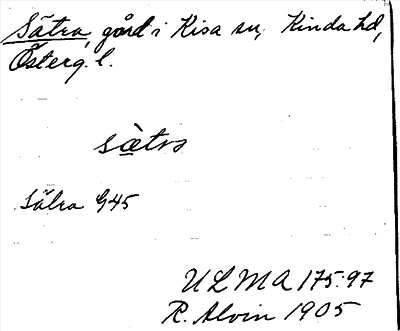 Sätra, gård i Kisa sn, Kinda hd,
Österg. l.
sä̀tra
Sätra G45
ULMA 175:97
R. Alvin 1905